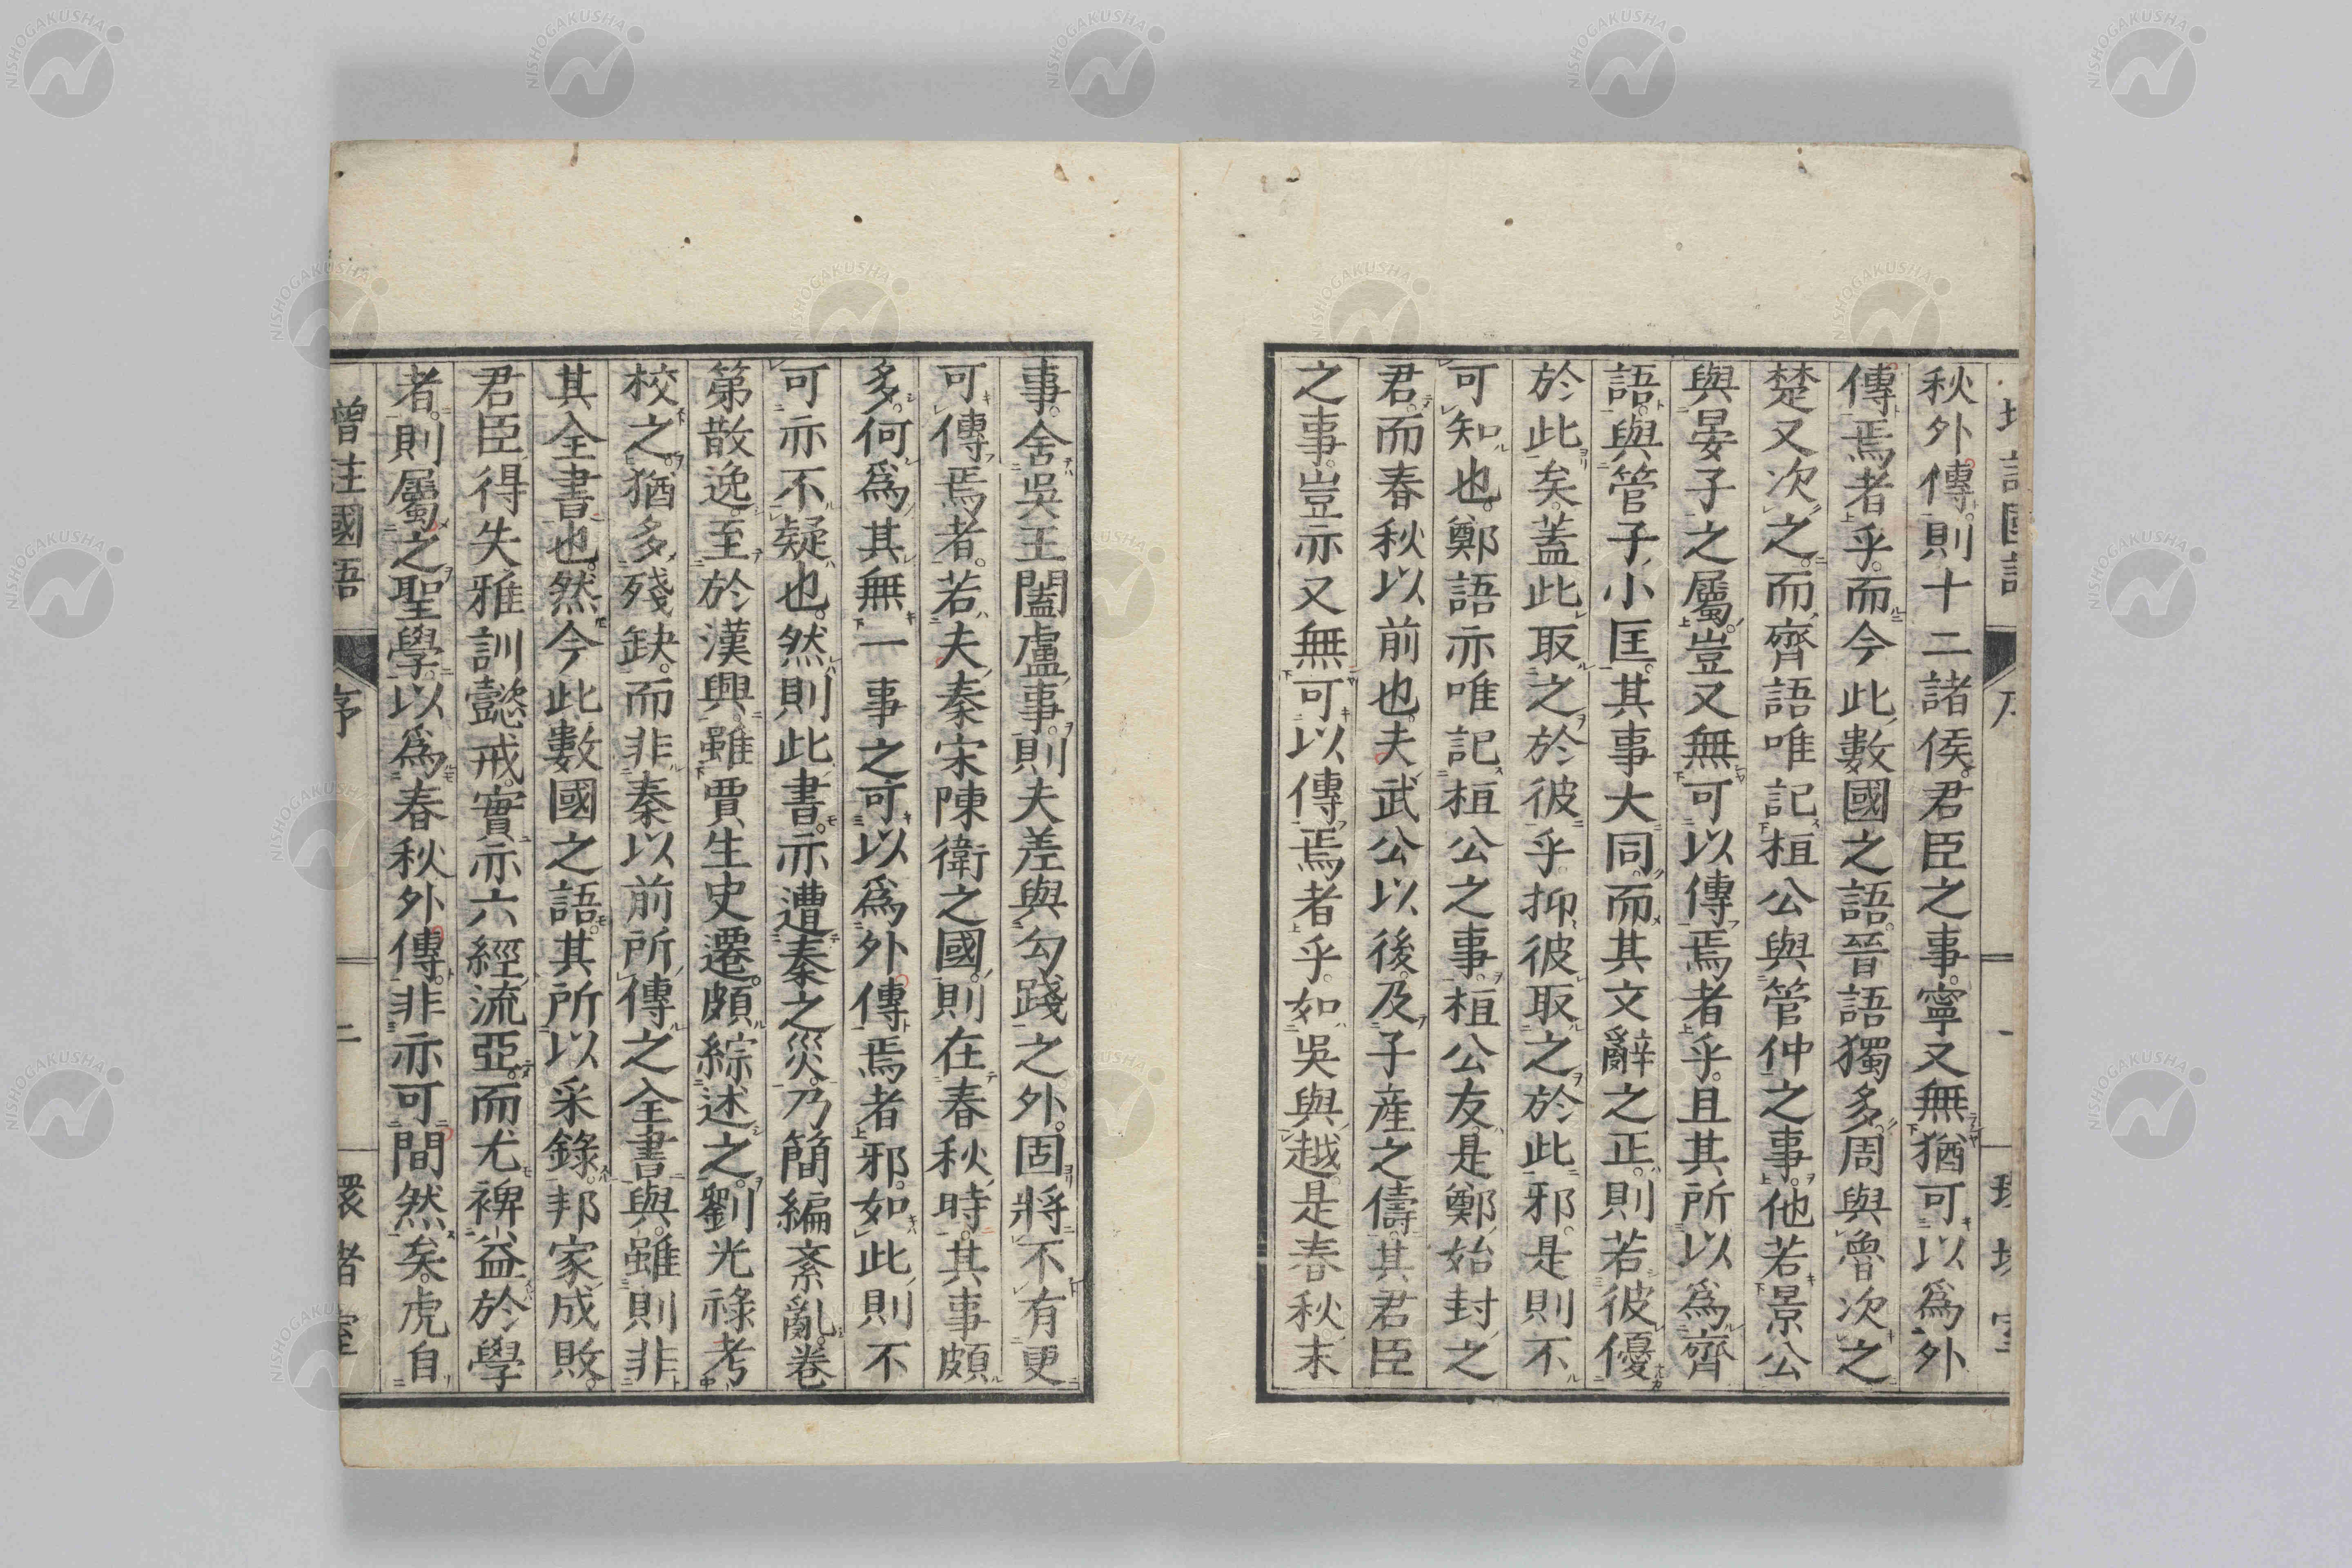 秋外傳則十二諸侯君臣之事。寧又無猶可以爲外
傳焉者乎。而今此數國之語。晉語獨多。周與魯次之
楚又次之。而齊語唯記桓公與管仲之事。他若景公
與晏子之屬。豈又無可以傳焉者乎。且其所以爲齊
語。與管子小匡。其事大同。而其文辭之正。則若彼優
於此矣。蓋此取之於彼乎。抑彼取之於此邪。是則不
可知也。鄭語亦唯記桓公之事。桓公友。是鄭始封之
君。而春秋以前也。夫武公以後。及子產之儔。其君臣
之事。豈亦又無可以傳焉者乎。如吳與越。是春秋末
事。舍吳王闔廬事。則夫差與勾踐之外。固將不有更
可傳焉者。若夫秦宋陳衛之國。則在春秋時。其事頗
多。何爲其無一事之可以爲外傳焉者邪。如此則不
可亦不疑也。然則此書。亦遭秦之災。乃簡編紊亂。卷
第散逸。至於漢興。雖賈生史遷。頗綜述之。劉光祿考
校之。猶多殘缺。而非秦以前所傳之全書與。雖則非
其全書也。然今此數國之語。其所以采錄。邦家成敗。
君臣得失。雅訓懿戒。實亦六經流亞。而尤裨益於學
者。則屬之聖學。以爲春秋外傳。非亦可間然矣。虎自
增注國語 序 二 環堵室